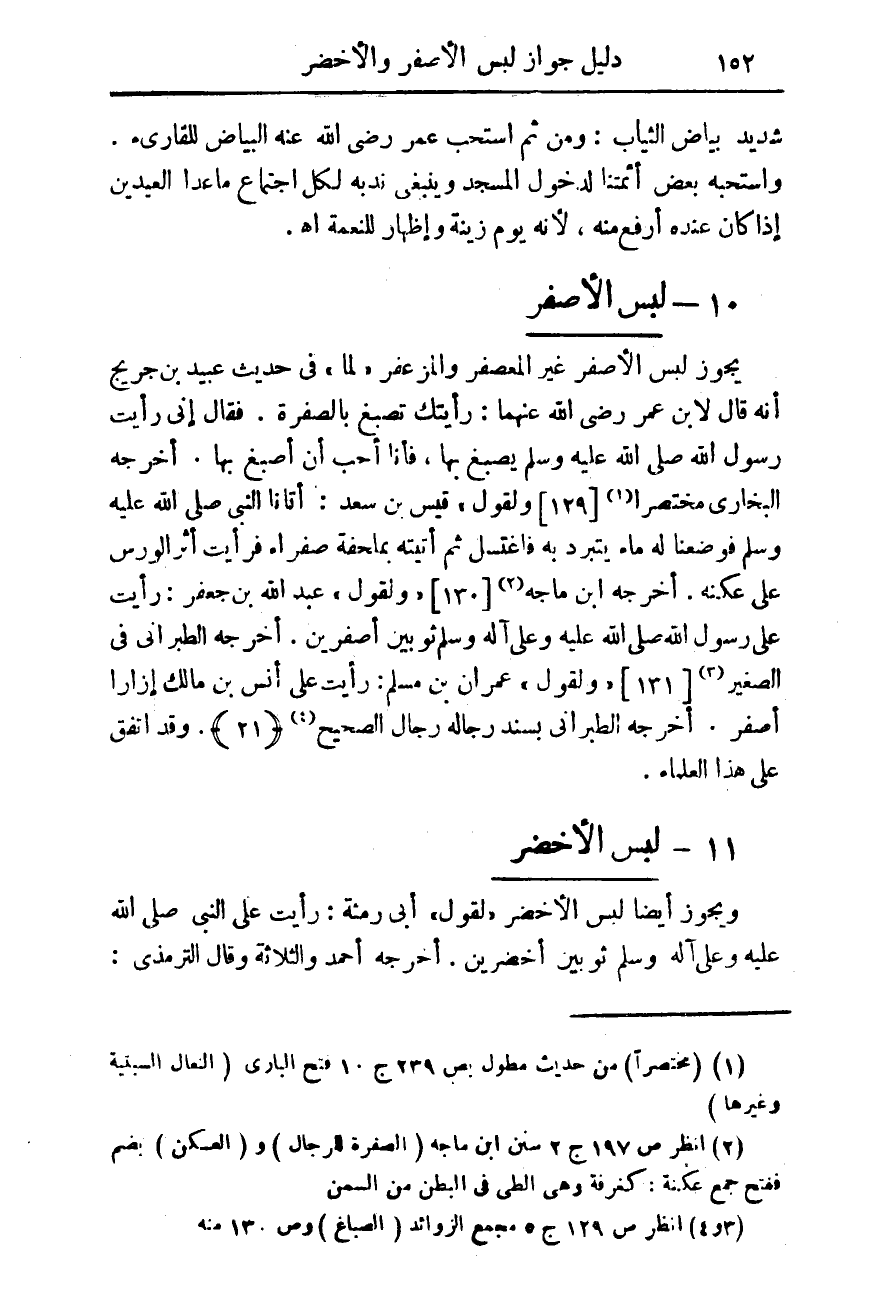 ١٥٢ دليل جواز لبس الأصفر والأخضر
شديد بياض الثياب : ومن ثم استحب عمر رضى الله عنه البياض للقارىء .
واستحبه بعض أئمتنا لدخول المسجد وينبغى ندبه لكل اجتماع ماعدا العيدين
إذا كان عنده أرفع منه ، لأنه يوم زينة وإظهار للنعمة اه .
١٠ – لبس الأصفر
يجوز لبس الأصفر غير المعصفر والمزعفر «لما» فى حديث عبيد بن جريج
أنه قال لابن عمر رضى الله عنهما : رأيتك تصبغ بالصفرة . فقال إنى رأيت
رسول الله صلى الله عليه وسلم يصبغ بها ، فأنا أحب أن أصبغ بها . أخرجه
البخارى مختصرا(١) [١٢٩] ولقول ، قيس بن سعد : أتانا النبى صلى الله عليه
وسلم فوضعنا له ماء يتبرد به فاغتسل ثم أتيته بملحفة صفراء فرأيت أثر الورس
على عكنه . أخرجه ابن ماجه(٢) [١٣٠] «ولقول» عبد الله بن جعفر : رأيت
على رسول الله صلى الله عليه وعلى آله وسلم ثوبين أصفرين . أخرجه الطبرانى فى
الصغير(٣) [١٣١] «ولقول» عمران بن مسلم : رأيت على أنس بن مالك إزارا
أصفر . أخرجه الطبرانى بسند رجاله رجال الصحيح(٤) ﴿٢١﴾ . وقد اتفق
على هذا العلماء .
١١ – لبس الأخضر
ويجوز أيضا لبس الأخضر «لقول» أبى رمثة : رأيت على النبى صلى الله
عليه وعلى آله وسلم ثوبين أخضرين . أخرجه أحمد والثلاثة وقال الترمذى :
(١) (مختصرآ) من حديث مطول بص ٢٣٩ ج ١٠ فتح البارى ( النعال السبتية
وغيرها )
(٢) انظر ص ١٩٧ ج ٢ سنن ابن ماجه ( الصفرة للرجال ) و ( العكن ) بضم
ففتح جمع عكنة : كغرفة وهى الطى فى البطن من السمن
(٣و٤) انظر ص ١٢٩ ج ٥ مجمع الزوائد ( الصباغ ) وص ١٣٠ منه